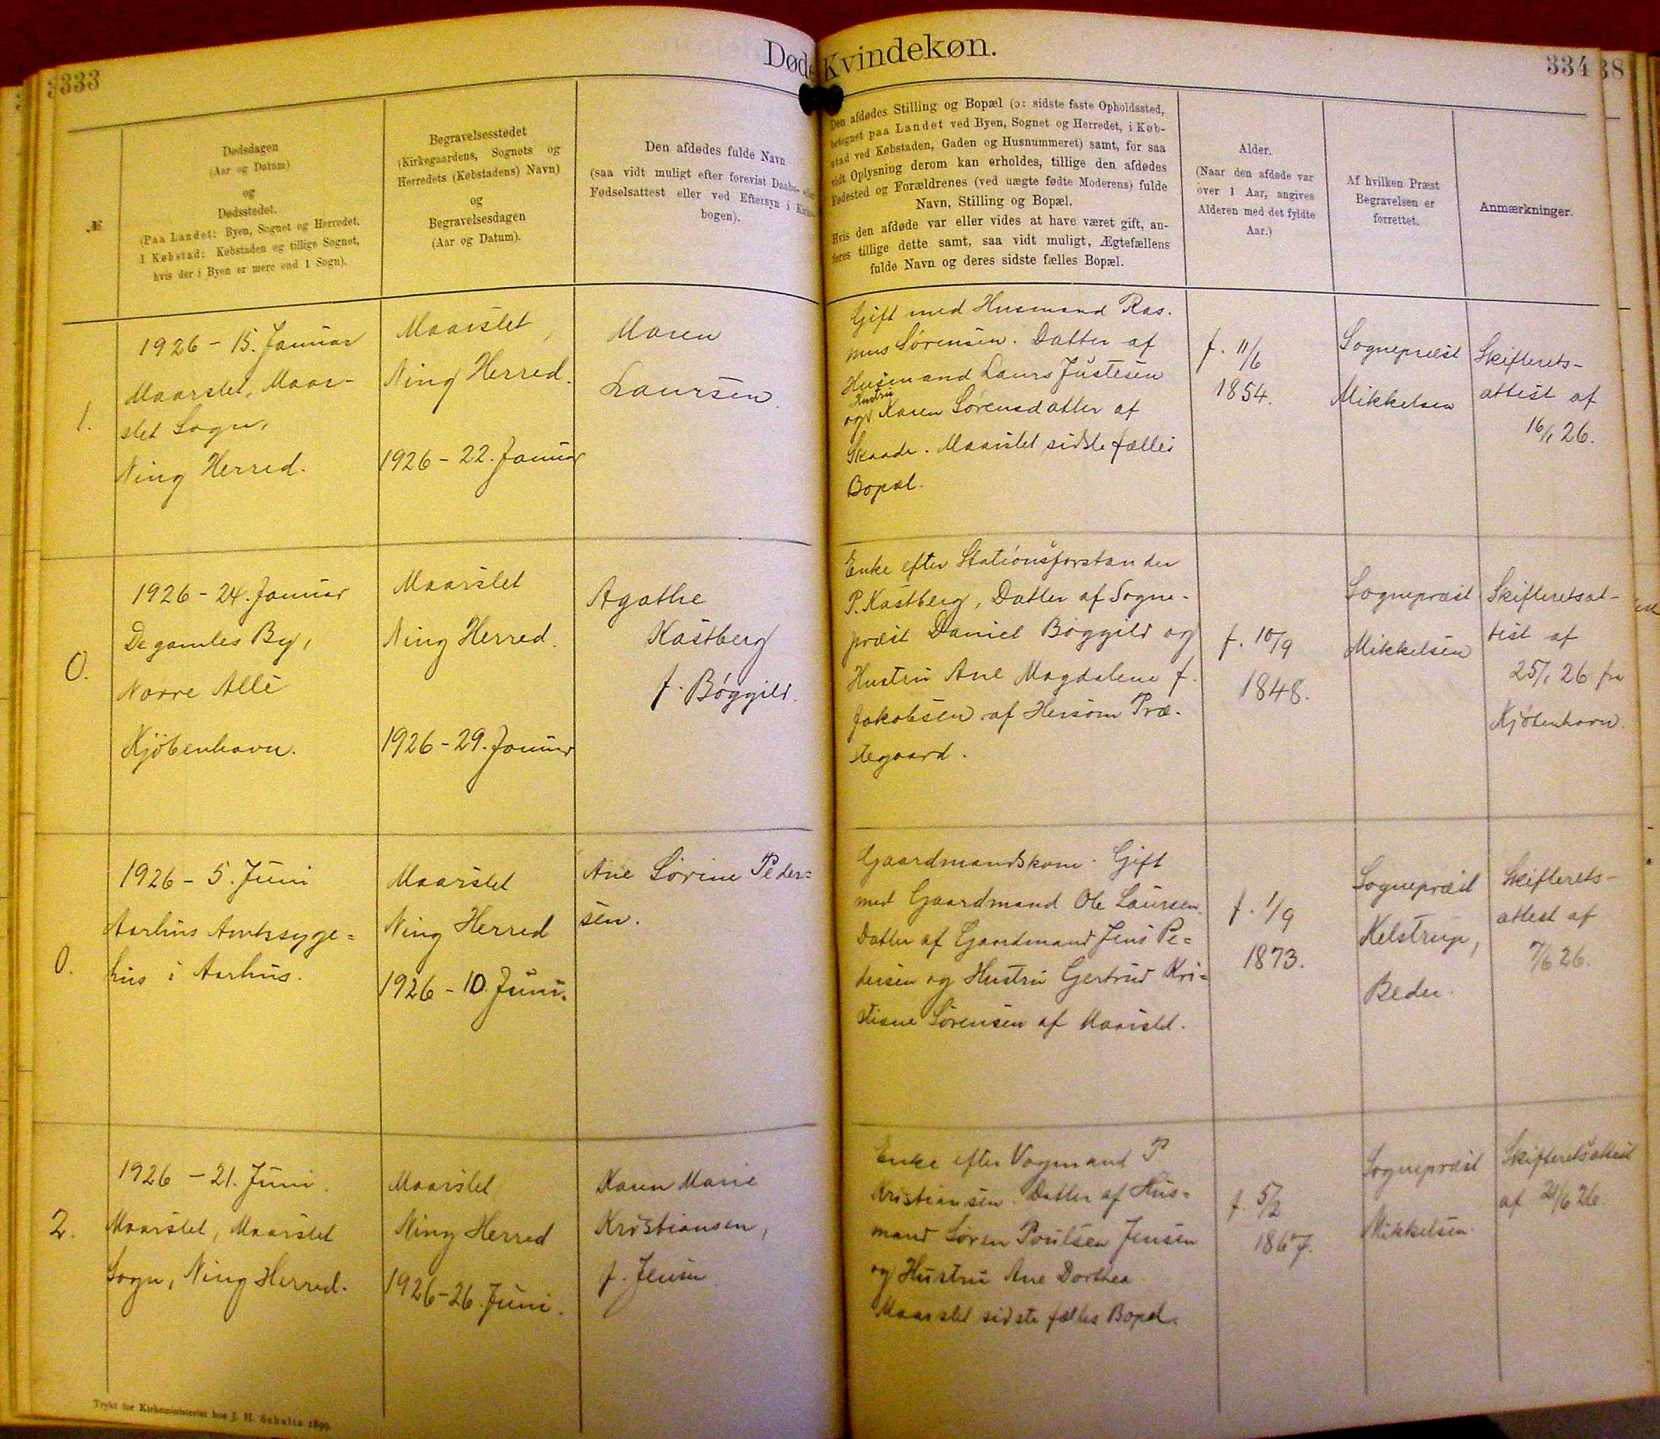 333
Døde Kvindekøn.
334
38
№
Dødsdagen
(Aar og Datum)
og
Dødsstedet.
(Paa Landet: Byen, Sognet og Herredet.
I Købstad: Købstaden og tillige Sognet,
hvis der i Byen er mere end 1 Sogn).
Begravelsesstedet
(Kirkegaardens, Sognets og
Herredets (Købstadens) Navn)
og
Begravelsesdagen
(Aar og Datum).
Den afdødes fulde Navn
(saa vidt muligt efter forevist Daabs- eller
Fødselsattest eller ved Eftersyn i Kirke-
bogen).
Den afdødes Stilling og Bopæl (ɔ: sidste faste Opholdssted,
betegnet paa Landet ved Byen, Sognet og Herredet, i Køb-
stad ved Købstaden, Gaden og Husnummeret) samt, for saa
vidt Oplysning derom kan erholdes, tillige den afdødes
Fødested og Forældrenes (ved uægte fødte Moderens) fulde
Navn, Stilling og Bopæl.
Hvis den afdøde var eller vides at have været gift, an-
føres tillige dette samt, saa vidt muligt, Ægtefællens
fulde Navn og deres sidste fælles Bopæl.
Alder.
(Naar den afdøde var
over 1 Aar, angives
Alderen med det fyldte
Aar.)
Af hvilken Præst
Begravelsen er
forrettet.
Anmærkninger.
1.
1926 - 15. Januar
Maarslet, Maar-
slet Sogn,
Ning Herred.
Maarslet,
Ning Herred.
1926 - 22. Januar
Maren
Laursen.
Gift med Husmand Ras-
mus Sørensen. Datter af
Husmand Laurs Justesen
og Hustru Karen Sørensdatter af
Skaade. Maarslet sidste fælles
Bopæl.
f. 11/6
1854.
Sognepræst
Mikkelsen
Skifterets-
attest af
16/1 26.
0.
1926 - 24. Januar
De gamles By,
Nørre Allé
Kjøbenhavn.
Maarslet
Ning Herred.
1926 - 29. Januar
Agathe
Kastberg
f. Bøggild.
Enke efter Stationsforstander
P. Kastberg, Datter af Sogne-
præst Daniel Bøggild og
Hustru Ane Magdalene f.
Jakobsen af Hersom Præ-
stegaard.
f. 10/9
1848.
Sognepræst
Mikkelsen
Skifteretsat-
test af
25/1 26 fra
Kjøbenhavn.
0.
1926 - 5. Juni
Aarhus Amtssyge=
hus i Aarhus.
Maarslet
Ning Herred
1926 - 10. Juni.
Ane Sørine Peder=
sen.
Gaardmandskone. Gift
med Gaardmand Ole Laursen.
Datter af Gaardmand Jens Pe=
dersen og Hustru Gertrud Kri=
stiane Sørensen af Maarslet.
f. 1/9
1873.
Sognepræst
Kelstrup,
Beder.
Skifterets-
attest af
7/6 26.
2.
1926 - 21. Juni.
Maarslet, Maarslet
Sogn, Ning Herred.
Maarslet
Ning Herred
1926 - 26. Juni.
Karen Marie
Kristiansen,
f. Jensen
Enke efter Vognmand P
Kristiansen. Datter af Hus=
mand Søren Poulsen Jensen
og Hustru Ane Dorthea.
Maarslet sidste fælles Bopæl.
f. 5/2
1867.
Sognepræst
Mikkelsen.
Skifteretsattest
af 21/6 26.
Trykt for Kirkeministeriet hos J. H. Schultz 1899.